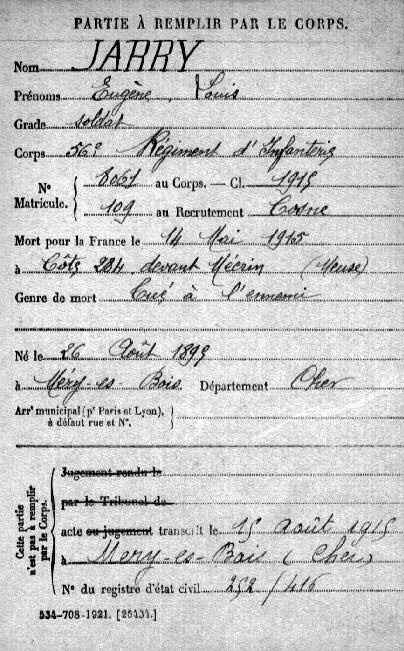 PARTIE À REMPLIR PAR LE CORPS.
Nom JARRY
Prénoms Eugène, Louis
Grade soldat
Corps 56e Régiment d'Infanterie
No Matricule. 8061 au Corps. — Cl. 1915
109 au Recrutement Cosne
Mort pour la France le 14 Mai 1915
à Côte 284 devant Mécrin (Meuse)
Genre de mort Tué à l'ennemi
Né le 26 Août 1895
à Méry-es-Bois Département Cher
Arrt municipal (pr Paris et Lyon),
à défaut rue et No.
Cette partie n'est pas à remplir par le Corps.
Jugement rendu le
par le Tribunal de
acte ou jugement transcrit le 15 Août 1915
à Méry-es-Bois (Cher)
No du registre d'état civil 252/416
534-708-1921. [26434.]